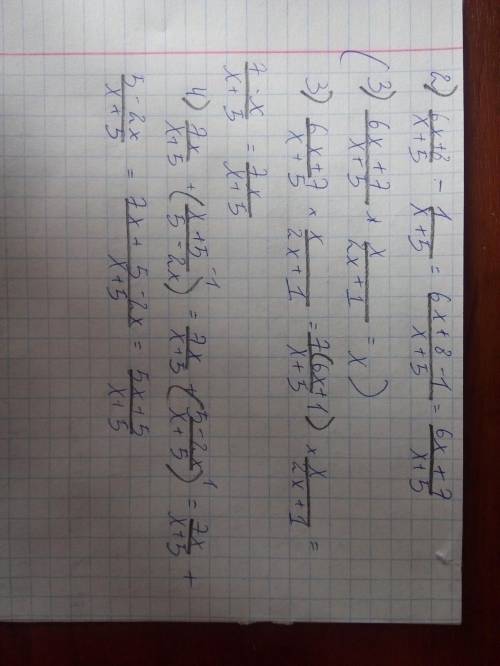 2) (6x+8)/(x+5) - 1/(x+5) = (6x+8-1)/(x+5) = (6x+7)/(x+5)
(3) (6x+7)/(x+5) × x/(2x+1) = x)
3) (6x+7)/(x+5) × x/(2x+1) = 7(6x+1)/(x+5) × x/(2x+1) =
(7·x)/(x+5) = 7x/(x+5)
4) 7x/(x+5) + ((x+5)/(5-2x))⁻¹ = 7x/(x+5) + ((5-2x)/(x+5))¹ = 7x/(x+5) +
(5-2x)/(x+5) = (7x+5-2x)/(x+5) = (5x+5)/(x+5)